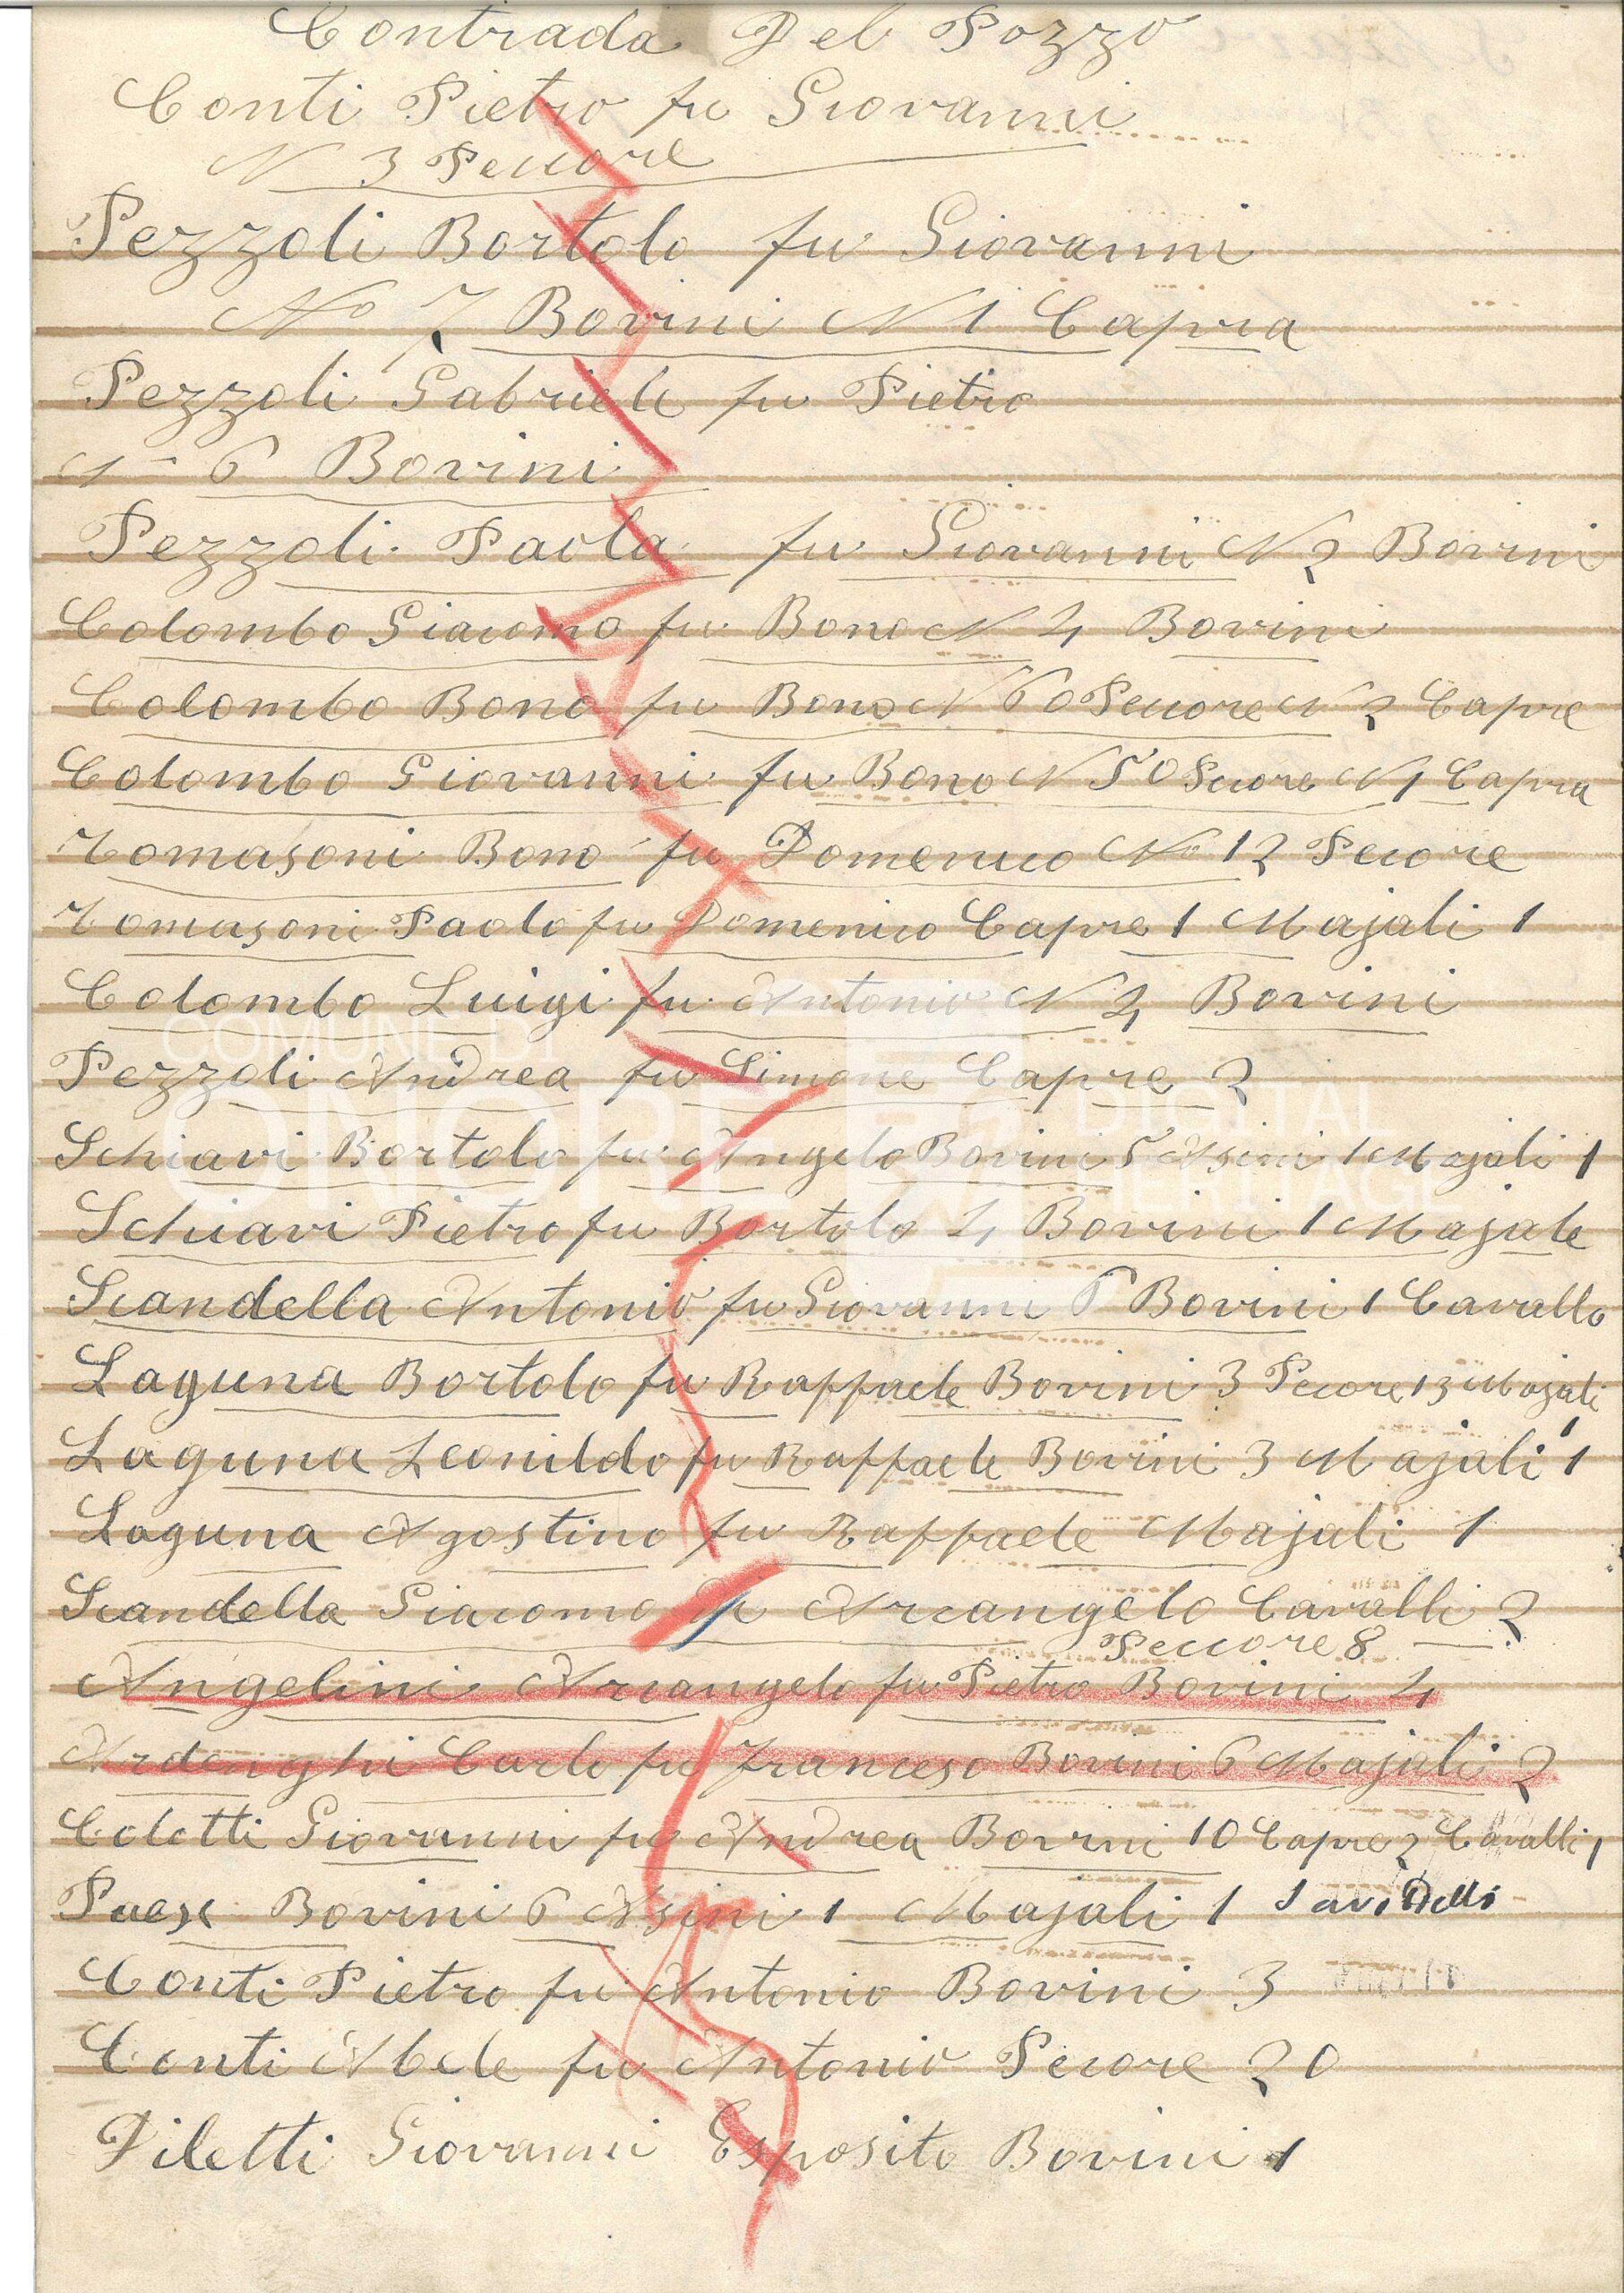 Contrada Del Pozzo
Conti Pietro fu Giovanni
N 3 Peccore
Pezzoli Bortolo fu Giovanni
No 7 Bovini N 1 Capra
Pezzoli Gabriele fu Pietro
N 6 Bovini
Pezzoli Paola fu Giovanni N 2 Bovini
Colombo Giacomo fu Bono N 4 Bovini
Colombo Bono fu Bono N 60 Peccore N 2 Capre
Colombo Giovanni fu Bono N 50 Pecore N 1 Capra
Tomasoni Bono fu Domenico No 12 Pecore
Tomasoni Paolo fu Domenico Capre 1 Majali 1
Colombo Luigi fu Antonio N 4 Bovini
Pezzoli Andrea fu Simone Capre 2
Schiavi Bortolo fu Angelo Bovini 5 Asini 1 Majali 1
Schiavi Pietro fu Bortolo 4 Bovini 1 Majale
Scandella Antonio fu Giovanni 6 Bovini 1 Cavallo
Laguna Bortolo fu Raffaele Bovini 3 Pecore 13 Majali 1
Laguna Leonildo fu Raffaele Bovini 3 Majali 1
Laguna Agostino fu Raffaele Majali 1
Scandella Giacomo Arcangelo Cavalli 2
Peccore 8
Angelini Arcangelo fu Pietro Bovini 4
Ardenghi Carlo fu Franceso Bovini 6 Majali 2
Coletti Giovanni fu Andrea Bovini 10 Capre 2 Cavalli 1
Bovini 6 Asini 1 Majali 1
Conti Pietro fu Antonio Bovini 3
Conti Abele fu Antonio Pecore 20
Piletti Giovanni Esposito Bovini 1
COMUNE DI
ONORE
DIGITAL
HERITAGE